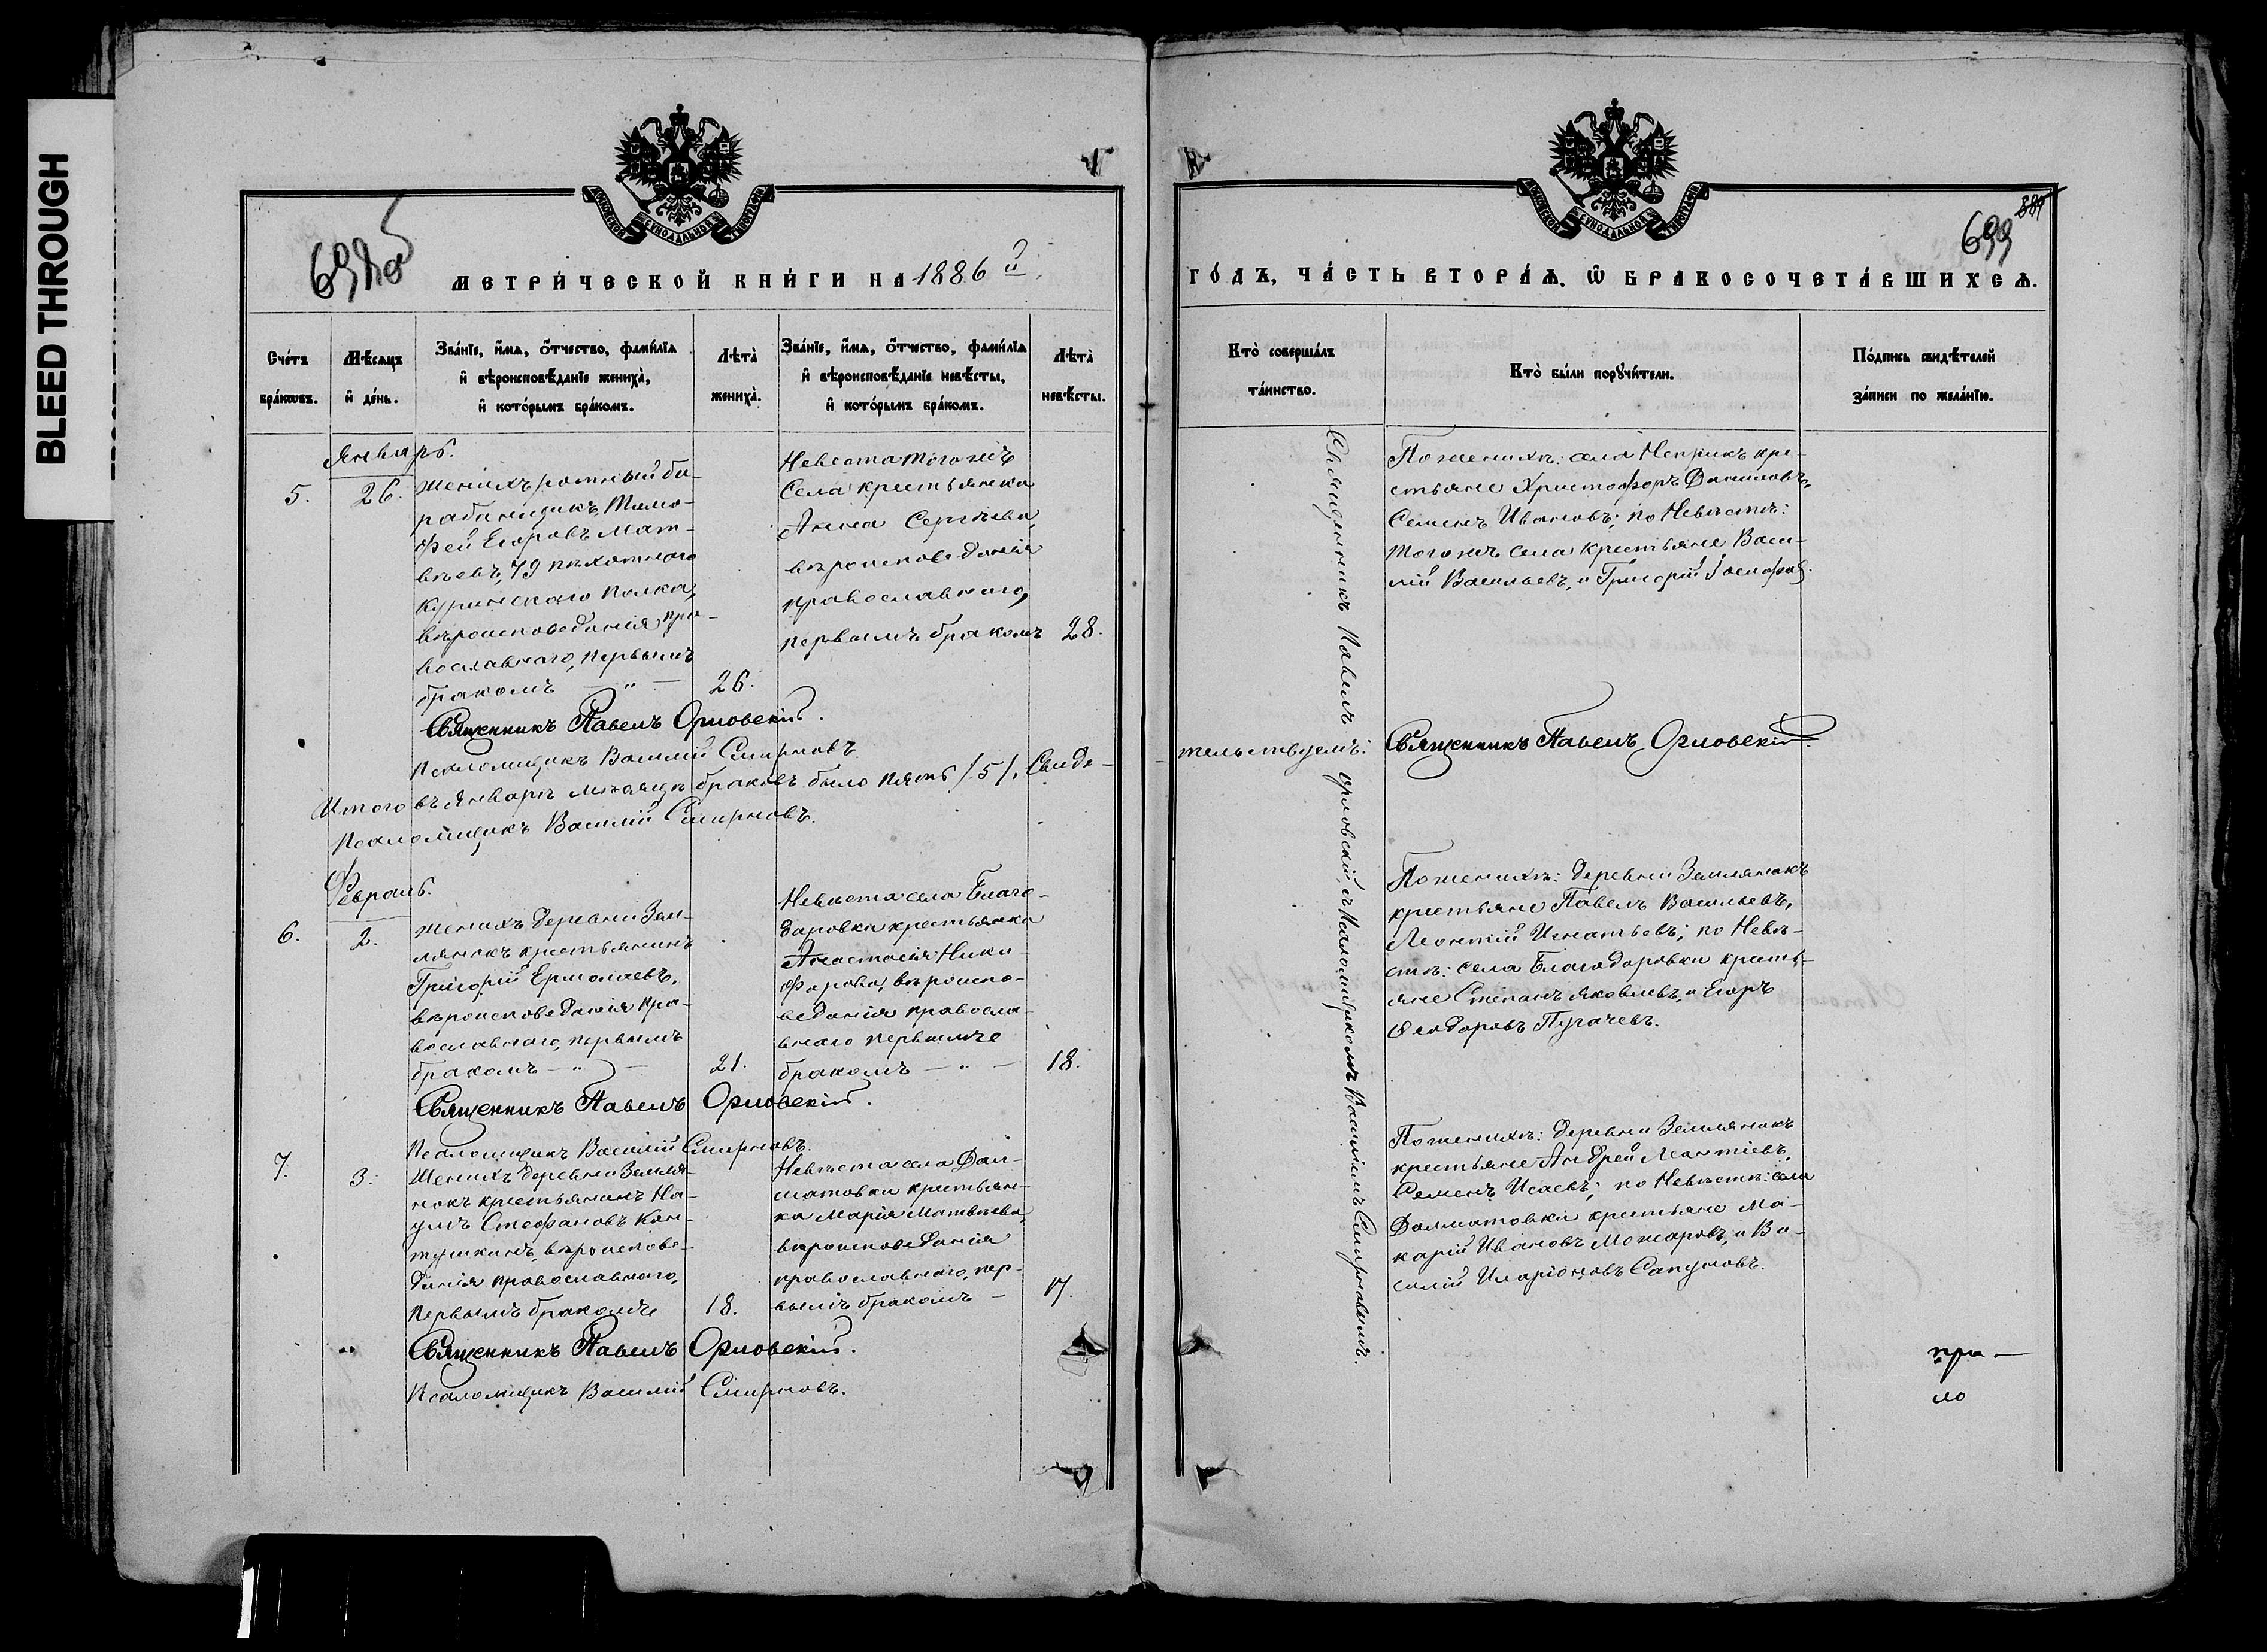 BLEED THROUGH
МОСКОВСКОЙ СУНОДАЛЬНОЙ ТИПОГРАФІИ
698об
МЕТРИЧЕСКОЙ КНИГИ НА 1886 й
Счетъ браковъ.
Мѣсяцъ и день.
Званіе, имя, отчество, фамилія
и вѣроисповѣданіе жениха,
и которымъ бракомъ.
Лѣта жениха.
Званіе, имя, отчество, фамилія
и вѣроисповѣданіе невѣсты,
и которымъ бракомъ.
Лѣта невѣсты.
Январь.
5.
26.
Женихъ ротный ба-
рабанщикъ, Тимо-
фей Егоровъ Мат-
вѣевъ, 79 пѣхотнаго
Куринскаго полка,
вѣроисповеданія пра-
вославнаго, первымъ
бракомъ — " —
26.
Невѣста того же
села крестьянка
Анна Сергѣева,
вѣроисповеданія
православнаго,
первымъ бракомъ
28.
Священникъ Павелъ Орловскій.
Псаломщикъ Василій Смирновъ.
Итого въ Январѣ мѣсяцѣ браковъ было пять /5/. Свиде-
Псаломщикъ Василій Смирновъ.
Февраль.
6.
2.
Женихъ деревни Зем-
лянокъ крестьянинъ
Григорій Ермолаевъ,
вѣроисповеданія пра-
вославнаго, первымъ
бракомъ — " —
21.
Невѣста села Благо-
даровки крестьянка
Анастасія Ники-
форова, вѣроиспо-
веданія правосла-
внаго первымъ
бракомъ — " —
18.
Священникъ Павелъ Орловскій.
Псаломщикъ Василій Смирновъ.
7.
3.
Женихъ деревни Земля-
нокъ крестьянинъ На-
умъ Стефановъ Кан-
тушкинъ, вѣроиспове-
данія православнаго,
первымъ бракомъ
18.
Невѣста села Дол-
матовки крестьян-
ка Марія Матвѣева,
вѣроисповеданія
православнаго, пер-
вымъ бракомъ —
17.
Священникъ Павелъ Орловскій.
Псаломщикъ Василій Смирновъ.
МОСКОВСКОЙ СУНОДАЛЬНОЙ ТИПОГРАФІИ
699
ГОДЪ, ЧАСТЬ ВТОРАЯ, Ѿ БРАКОСОЧЕТАВШИХСЯ.
Кто совершалъ таинство.
Кто были поручители.
Подпись свидѣтелей
записи по желанію.
Священникъ Павелъ Орловскій, съ Псаломщикомъ Василіемъ Смирновымъ.
По женихѣ: села Неприкъ кре-
стьяне Христофоръ Даниловъ,
Семенъ Ивановъ; по Невѣстѣ:
того же села крестьяне Васи-
лій Васильевъ, и Григорій
тельствуемъ: Священникъ Павелъ Орловскій.
По женихѣ: деревни Землянокъ
крестьяне Павелъ Васильевъ,
Леонтій Игнатьевъ; по Невѣ-
стѣ: села Благодаровки кресть-
яне Степанъ Яковлевъ, и Егоръ
Ѳеодоровъ Пугачевъ.
По женихѣ: деревни Землянокъ
крестьяне Андрей Леонтіевъ,
Семенъ Исаевъ; по Невѣстѣ: села
Долматовки крестьяне Ма-
карій Ивановъ Можаровъ, и Ва-
силій Иларіоновъ Сапуновъ.
при —
ло